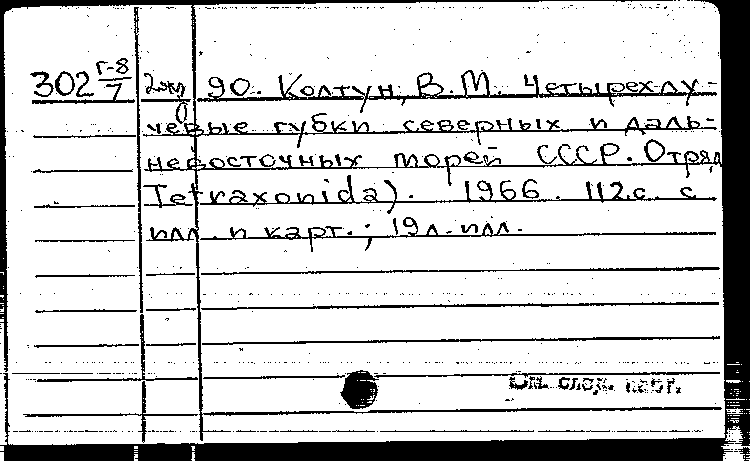 302 г-8/7 2экз 90. Колтун, В.М. Четырехлу-
чевые губки северных и даль-
невосточных морей СССР. Отряд
Tetraxonida). 1966. 112с. с
илл. и карт.; 19л. илл.
См. след. карт.